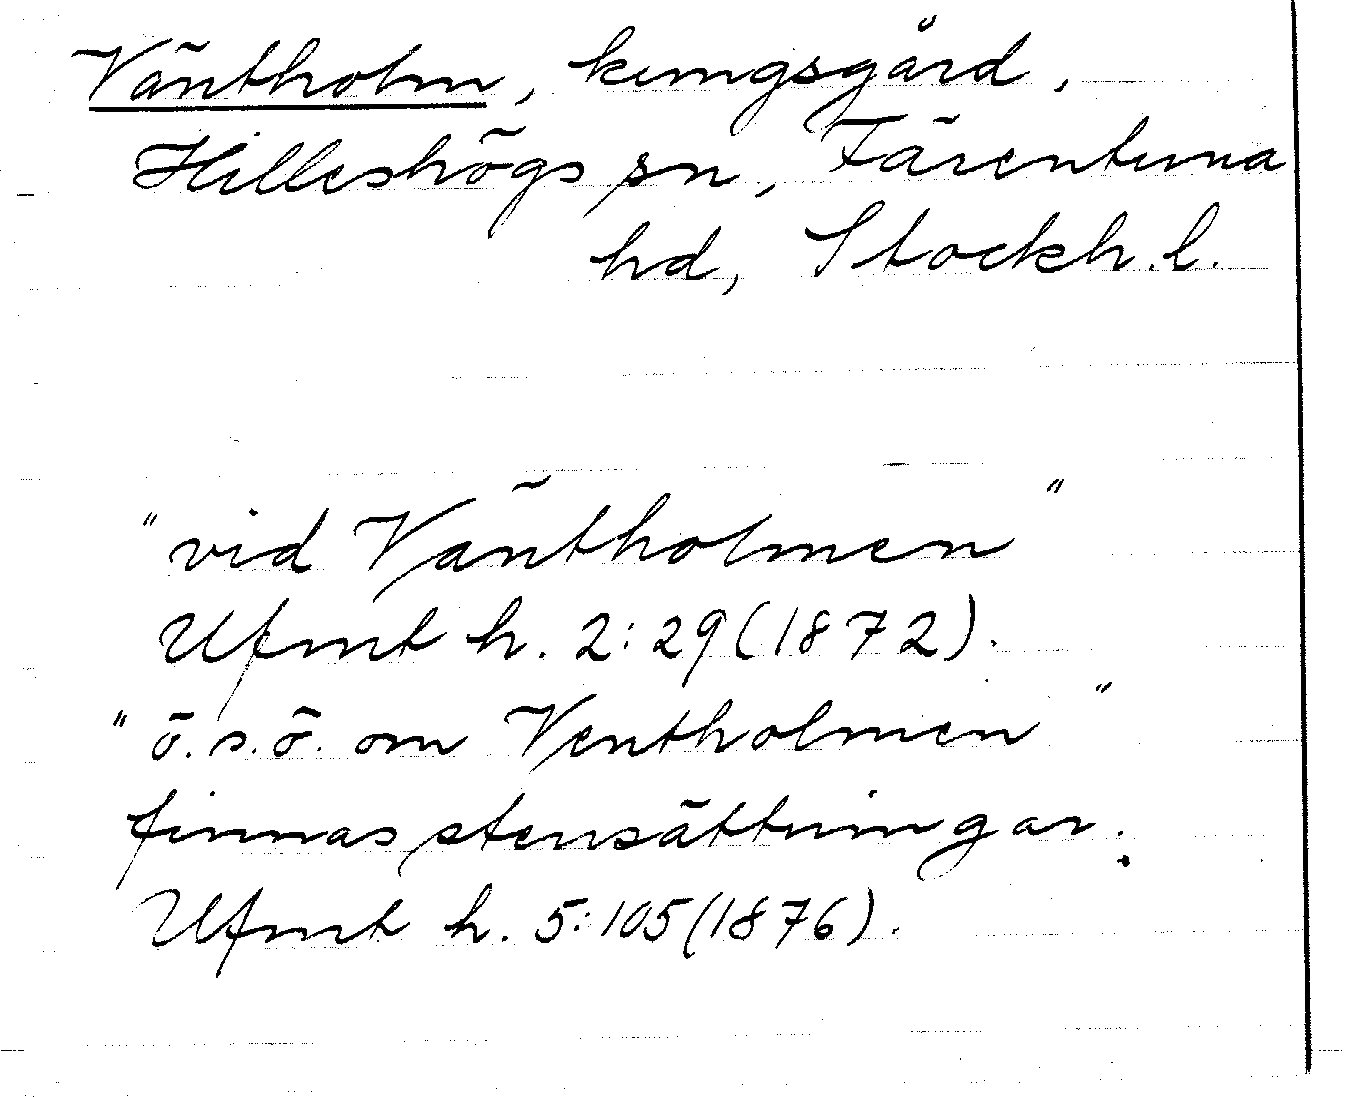 Väntholm, kungsgård,
Hilleshögs sn, Färentuna
hd, Stockh.l.
"vid Väntholmen"
Ufmt h. 2:29(1872).
"ö.s.ö. om Ventholmen"
finnas stensättningar.
Ufmt h. 5:105(1876).